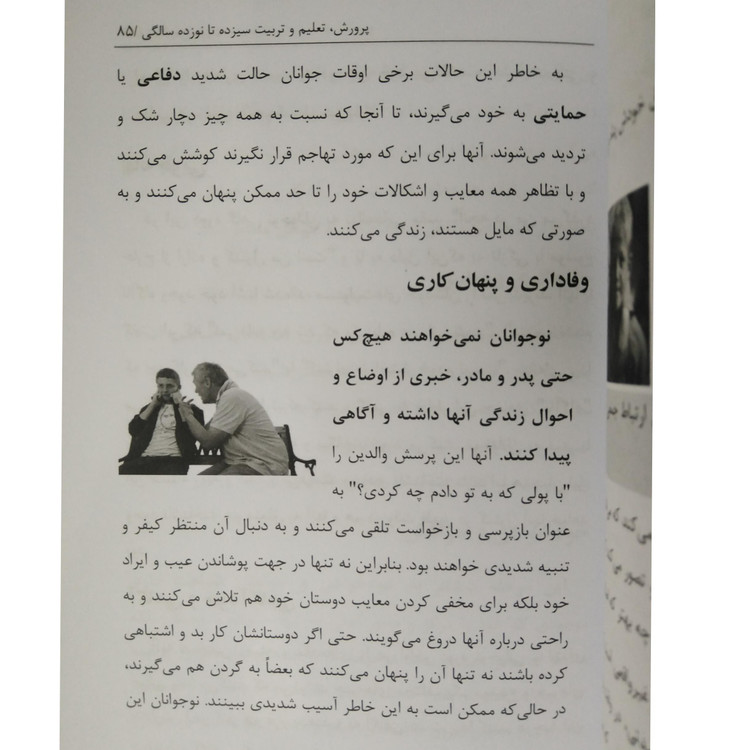 پرورش، تعلیم و تربیت سیزده تا نوزده سالگی /۸۵
به خاطر این حالات برخی اوقات جوانان حالت شدید دفاعی یا
حمایتی به خود می‌گیرند، تا آنجا که نسبت به همه چیز دچار شک و
تردید می‌شوند. آنها برای این که مورد تهاجم قرار نگیرند کوشش می‌کنند
و با تظاهر همه معایب و اشکالات خود را تا حد ممکن پنهان می‌کنند و به
صورتی که مایل هستند، زندگی می‌کنند.
وفاداری و پنهان‌کاری
نوجوانان نمی‌خواهند هیچ‌کس
حتی پدر و مادر، خبری از اوضاع و
احوال زندگی آنها داشته و آگاهی
پیدا کنند. آنها این پرسش والدین را
"با پولی که به تو دادم چه کردی؟" به
عنوان بازپرسی و بازخواست تلقی می‌کنند و به دنبال آن منتظر کیفر و
تنبیه شدیدی خواهند بود. بنابراین نه تنها در جهت پوشاندن عیب و ایراد
خود بلکه برای مخفی کردن معایب دوستان خود هم تلاش می‌کنند و به
راحتی درباره آنها دروغ می‌گویند. حتی اگر دوستانشان کار بد و اشتباهی
کرده باشند نه تنها آن را پنهان می‌کنند که بعضاً به گردن هم می‌گیرند،
در حالی‌که ممکن است به این خاطر آسیب شدیدی ببینند. نوجوانان این